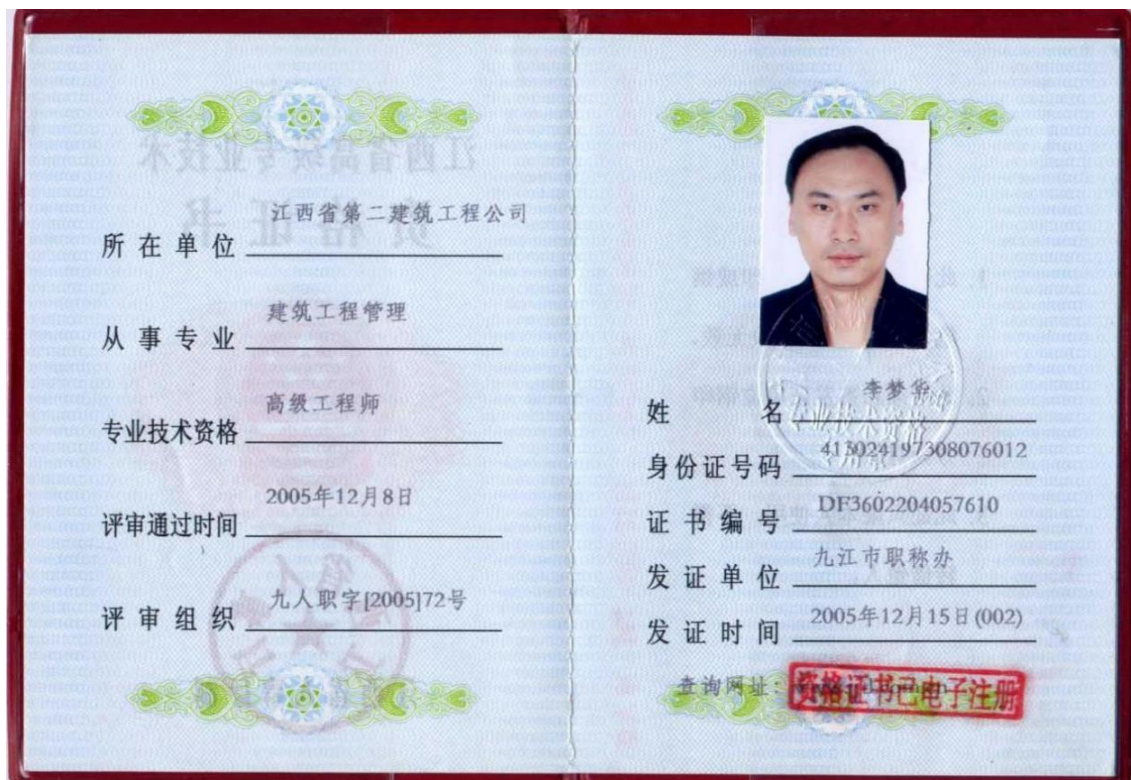 江西省高级专业技术
资格证书
所在单位 江西省第二建筑工程公司
从事专业 建筑工程管理
专业技术资格 高级工程师
评审通过时间 2005年12月8日
评审组织 九人职字[2005]72号
姓名 李梦华
专业技术资格
身份证号码 413024197308076012
证书编号 DF3602204057610
发证单位 九江市职称办
发证时间 2005年12月15日(002)
查询网址：
资格证书已电子注册